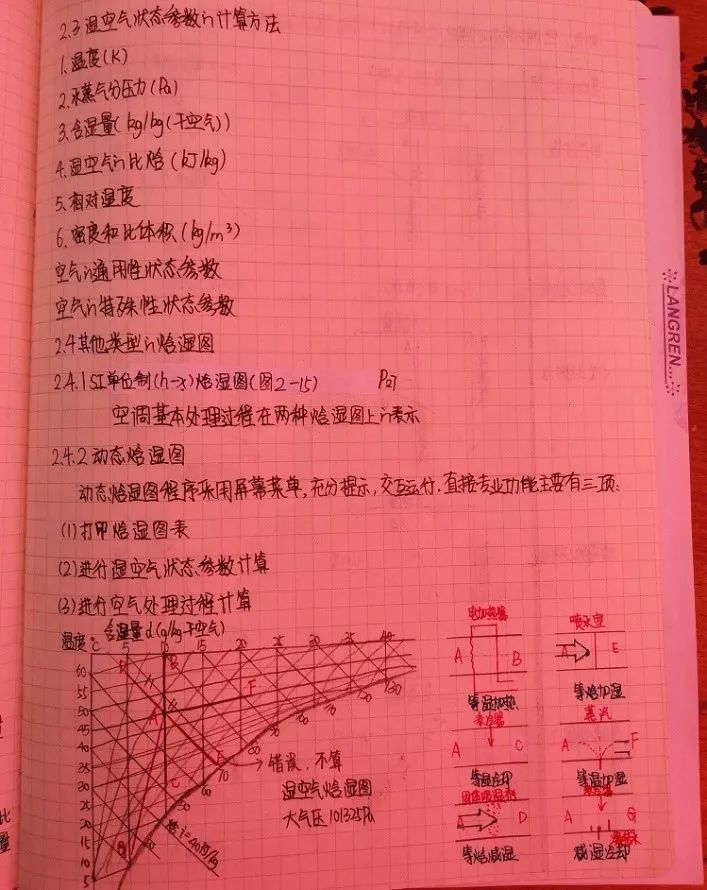 2.3 湿空气状态参数的计算方法
1.温度(K)
2.水蒸气分压力(Pa)
3.含湿量(kg/kg(干空气))
4.湿空气的比焓(kJ/kg)
5.相对湿度
6.密度和比体积(kg/m³)
空气的通用性状态参数
空气的特殊性状态参数
2.4其他类型的焓湿图
2.4.1 SI单位制(h-x)焓湿图(图2-15) P27
空调基本处理过程在两种焓湿图上的表示
2.4.2动态焓湿图
动态焓湿图程序采用屏幕菜单,充分提示,交互运行.直接专业功能主要有三项:
(1)打印焓湿图表
(2)进行湿空气状态参数计算
(3)进行空气处理过程计算
温度℃ 含湿量d(g/kg干空气)
5 10 15 20 25 30 35 40
60
55
50
45
40
35
30
25
20
15
10
5
B
A
F
E
C
G
50
60
70
80
90
100
110
120
130
焓i=40kJ/kg
错误,不算
湿空气焓湿图
大气压101325Pa
电加热器
A B
等湿加热
表冷器
A C
等湿冷却
固体吸湿剂
A D
等焓减湿
喷水室
A E
等焓加湿
蒸汽
A F
等温加湿
表冷器
A G
减湿冷却
LANGREN...